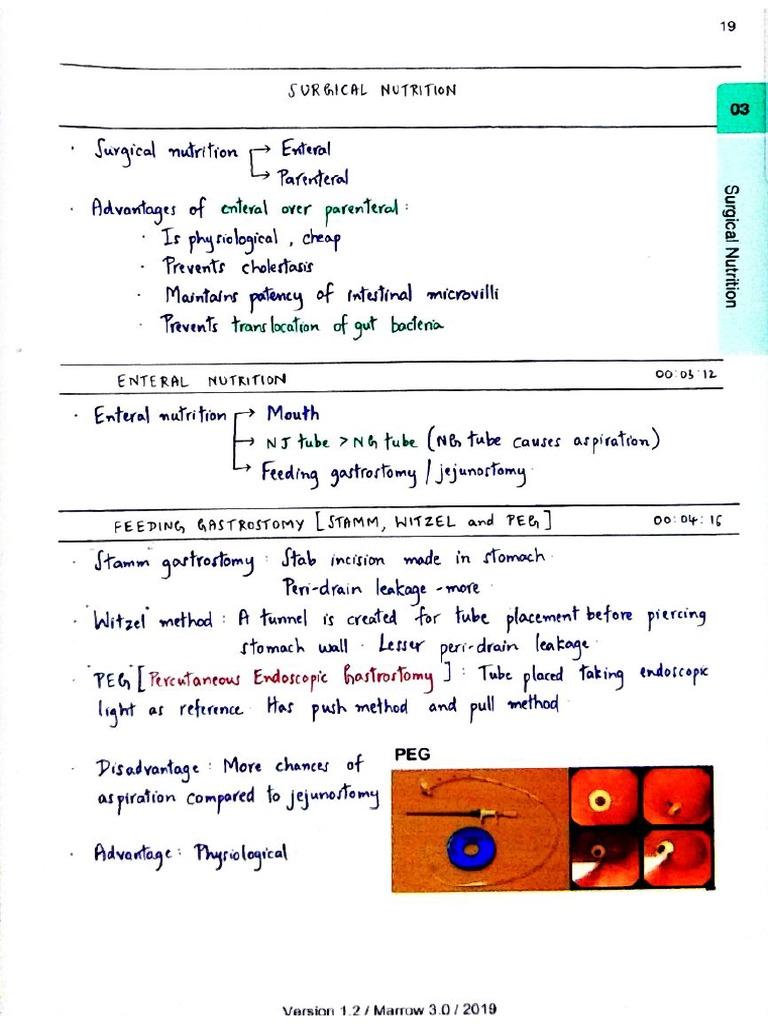 19
SURGICAL NUTRITION
03
Surgical Nutrition
· Surgical nutrition → Enteral
→ Parenteral
· Advantages of enteral over parenteral :
· Is physiological , cheap
· Prevents cholestasis
· Maintains patency of intestinal microvilli
· Prevents translocation of gut bacteria
ENTERAL NUTRITION 00:03:12
· Enteral nutrition → Mouth
→ NJ tube > NG tube (NG tube causes aspiration)
→ Feeding gastrostomy / jejunostomy
FEEDING GASTROSTOMY [STAMM, WITZEL and PEG] 00:04:16
· Stamm gastrostomy : Stab incision made in stomach
Peri-drain leakage - more
· "Witzel" method : A tunnel is created for tube placement before piercing
stomach wall · Lesser peri-drain leakage
· PEG [Percutaneous Endoscopic Gastrostomy] : Tube placed taking endoscopic
light as reference · Has push method and pull method
· Disadvantage : More chances of
aspiration compared to jejunostomy
· Advantage : Physiological
PEG
Version 1.2 / Marrow 3.0 / 2019